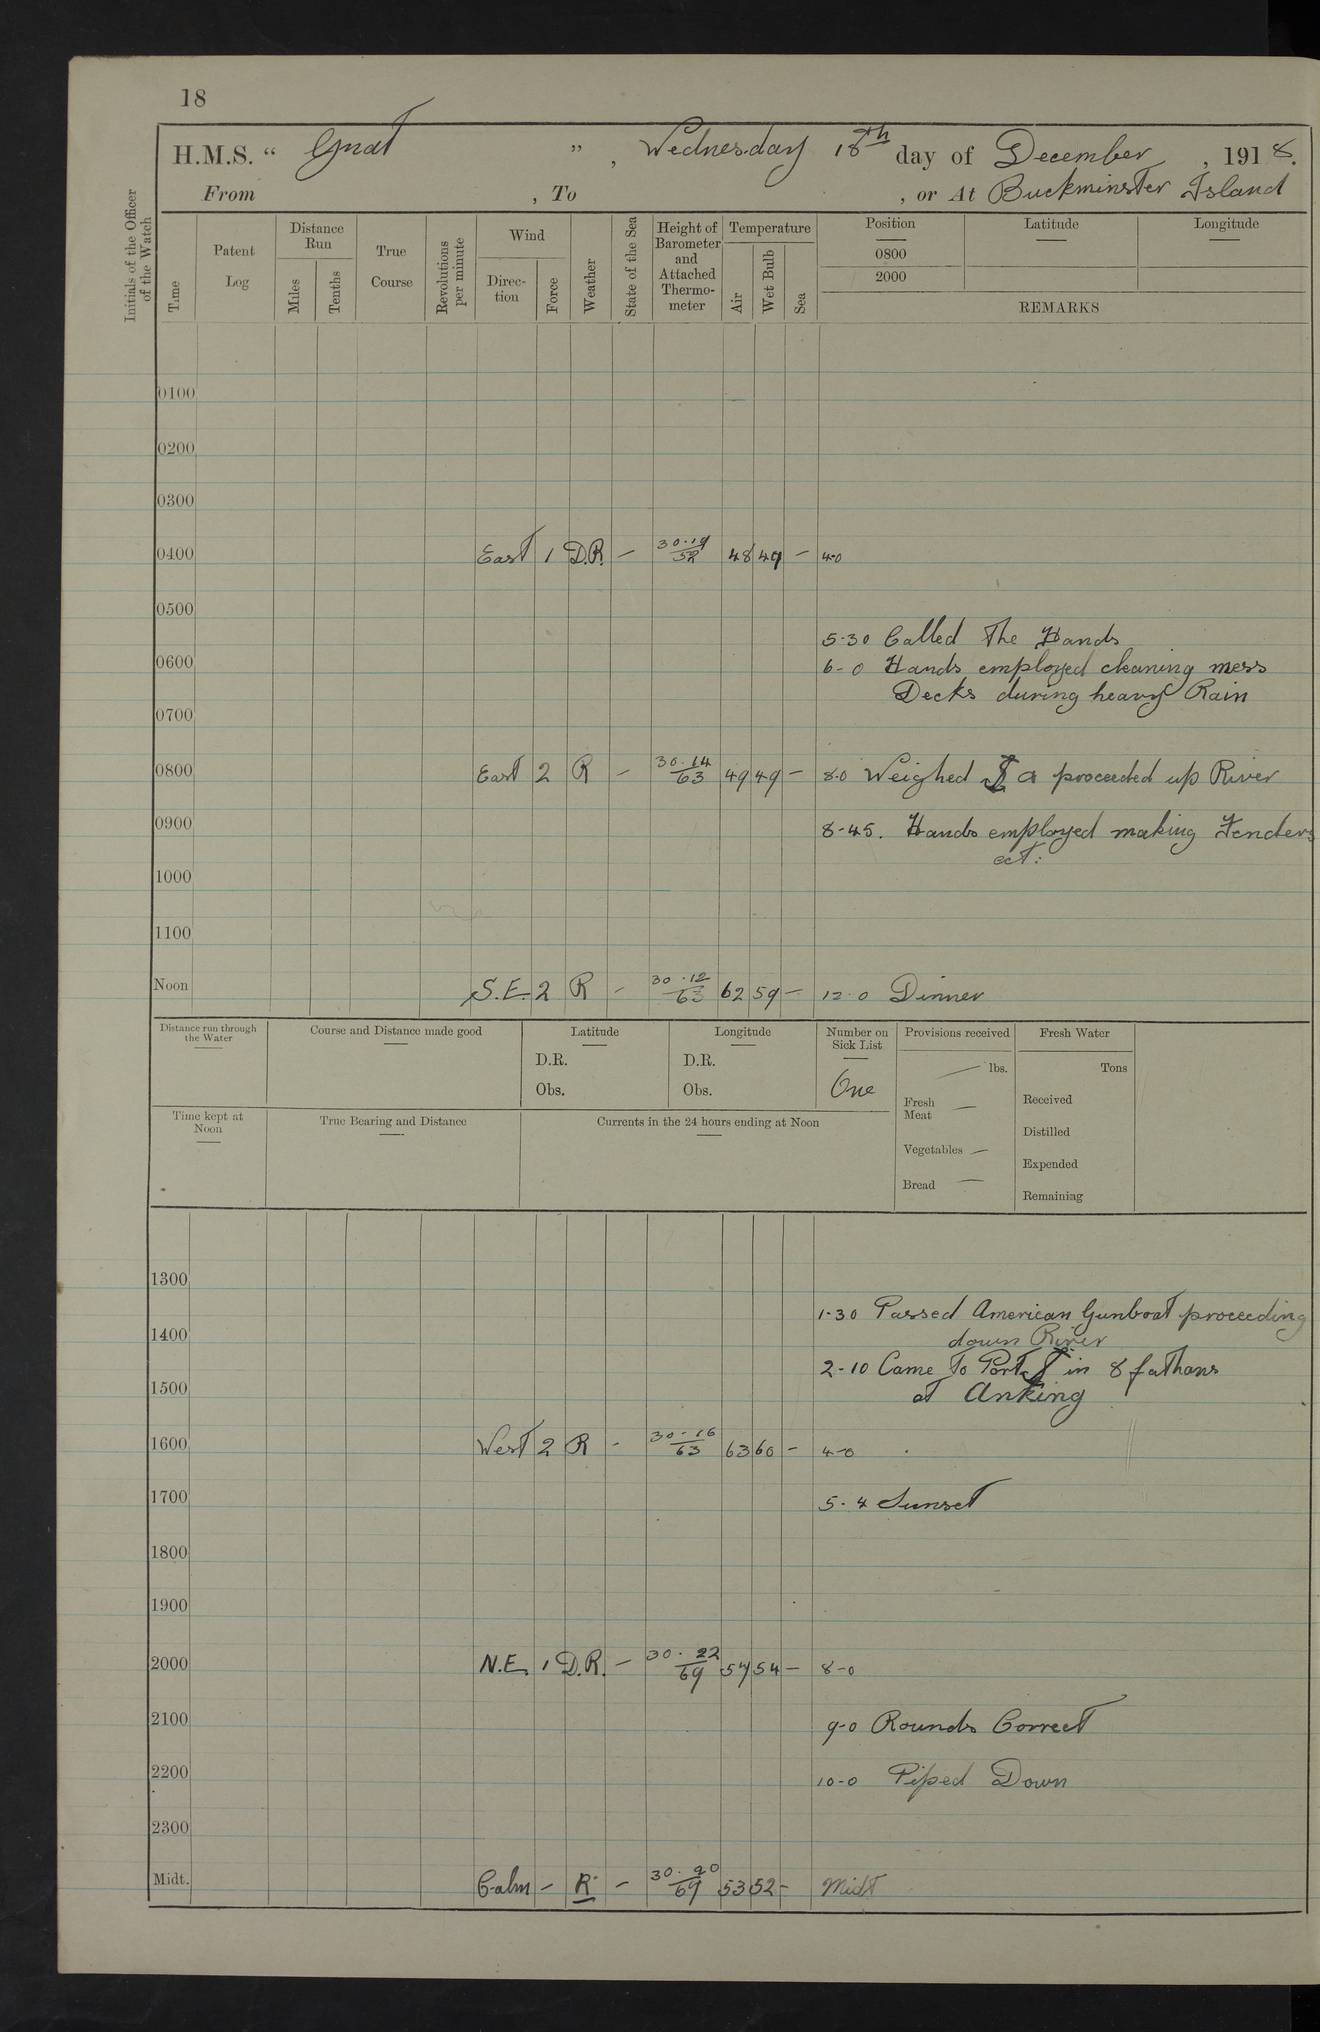 18
H.M.S. “ Gnat ” , Wednesday 18th day of December , 1918.
From , To , or At Buckminster Island
Initials of the Officer of the Watch
Time
Patent Log
Distance Run
Miles
Tenths
True Course
Revolutions per minute
Wind
Direction
Force
Weather
State of the Sea
Height of Barometer and Attached Thermometer
Temperature
Air
Wet Bulb
Sea
Position
0800
2000
Latitude
Longitude
REMARKS
0100
0200
0300
0400 East 1 D.R. — 30.19 52 48 49 — 4-0
0500
5-30 Called The Hands
0600 6-0 Hands employed cleaning mess
Decks during heavy Rain
0700
0800 East 2 R — 30.14 63 49 49 — 8-0 Weighed & proceeded up River
0900 8-45. Hands employed making Fenders
ect:
1000
1100
Noon S.E. 2 R — 30.12 63 62 59 — 12-0 Dinner
Distance run through the Water
Course and Distance made good
Latitude
D.R.
Obs.
Longitude
D.R.
Obs.
Number on Sick List
One
Provisions received
— lbs.
Fresh Meat —
Vegetables —
Bread —
Fresh Water
Tons
Received
Distilled
Expended
Remaining
Time kept at Noon
True Bearing and Distance
Currents in the 24 hours ending at Noon
1300
1-30 Passed American Gunboat proceeding
1400 down River
2-10 Came To Port in 8 fathoms
1500 at Anking
1600 West 2 R - 30.16 63 63 60 — 4-0
1700 5-4 Sunset
1800
1900
2000 N.E. 1 D.R. — 30.22 69 54 54 — 8-0
2100 9-0 Rounds Correct
2200 10-0 Piped Down
2300
Midt. Calm — R — 30.20 69 53 52 - Midt